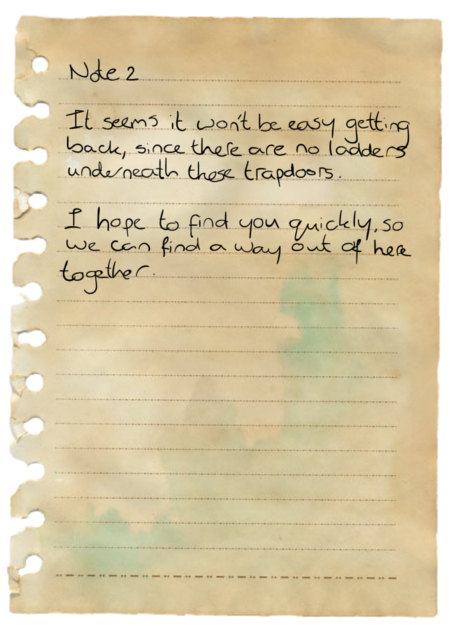 Note 2
It seems it won't be easy getting
back, since there are no ladders
underneath these trapdoors.
I hope to find you quickly, so
we can find a way out of here
together.